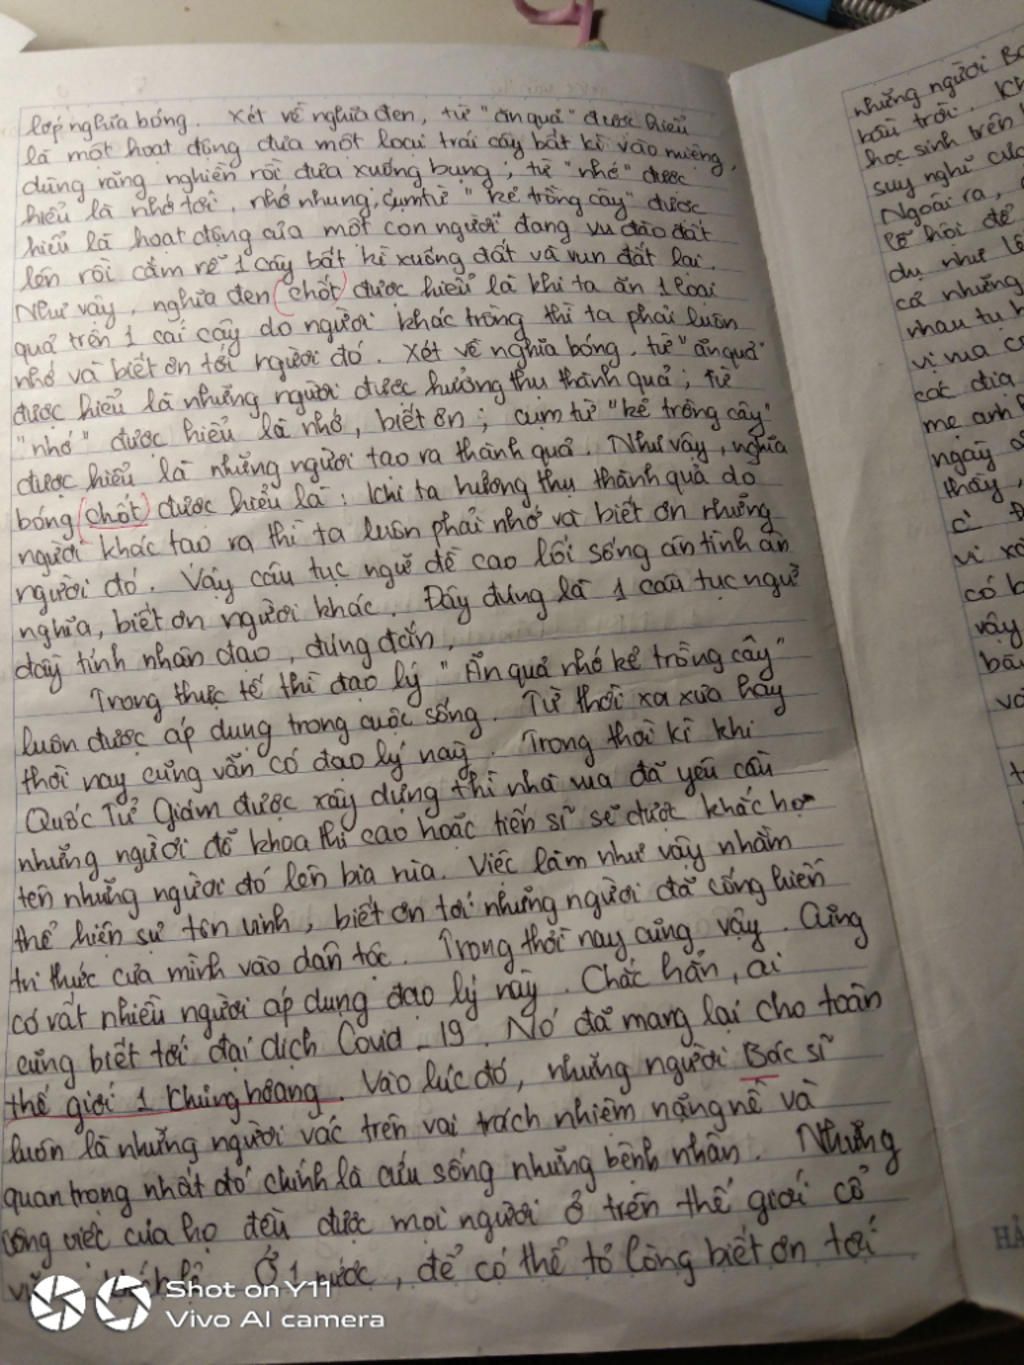 lớp nghĩa bóng. Xét về nghĩa đen, từ "ăn quả" được hiểu
là một hoạt động đưa một loại trái cây bất kì vào miệng,
dùng răng nghiền rồi đưa xuống bụng; từ "nhớ" được
hiểu là nhớ tới, nhớ nhung; cụm từ "kẻ trồng cây" được
hiểu là hoạt động của một con người đang vu đào đất
lên rồi cắm rễ 1 cây bất kì xuống đất và vun đất lại.
Như vậy, nghĩa đen (chốt) được hiểu là khi ta ăn 1 loại
quả trên 1 cái cây do người khác trồng thì ta phải luôn
nhớ và biết ơn tới người đó. Xét về nghĩa bóng, từ "ăn quả"
được hiểu là những người được hưởng thụ thành quả; từ
"nhớ" được hiểu là nhớ, biết ơn; cụm từ "kẻ trồng cây"
được hiểu là những người tạo ra thành quả. Như vậy, nghĩa
bóng (chốt) được hiểu là: Khi ta hưởng thụ thành quả do
người khác tạo ra thì ta luôn phải nhớ và biết ơn những
người đó. Vậy câu tục ngữ đề cao lối sống ân tình ân
nghĩa, biết ơn người khác. Đây đúng là 1 câu tục ngữ
đầy tính nhân đạo, đúng đắn.
Trong thực tế thì đạo lý "Ăn quả nhớ kẻ trồng cây"
luôn được áp dụng trong cuộc sống. Từ thời xa xưa hay
thời nay cũng vẫn có đạo lý này. Trong thời kì khi
Quốc Tử Giám được xây dựng thì nhà vua đã yêu cầu
những người đỗ khoa thi cao hoặc tiến sĩ sẽ được khắc họ
tên những người đó lên bia rùa. Việc làm như vậy nhằm
thể hiện sự tôn vinh, biết ơn tới những người đã cống hiến
tri thức của mình vào dân tộc. Trong thời nay cũng vậy. Cũng
có rất nhiều người áp dụng đạo lý này. Chắc hẳn, ai
cũng biết tới đại dịch Covid_19. Nó đã mang lại cho toàn
thế giới 1 khủng hoảng. Vào lúc đó, những người Bác sĩ
luôn là những người vác trên vai trách nhiệm nặng nề và
quan trọng nhất đó chính là cứu sống những bệnh nhân. Những
công việc của họ đều được mọi người ở trên thế giới cổ
Ở 1 nước, để có thể tỏ lòng biết ơn tới
Shot on Y11
Vivo AI camera
những người Bá
bầu trời. Kh
học sinh trên
suy nghĩ của
Ngoài ra,
lễ hội để
dụ như lễ
cả những
nhau tụ h
vị vua c
các địa
mẹ anh h
ngày
thầy,
vì
có b
vậy